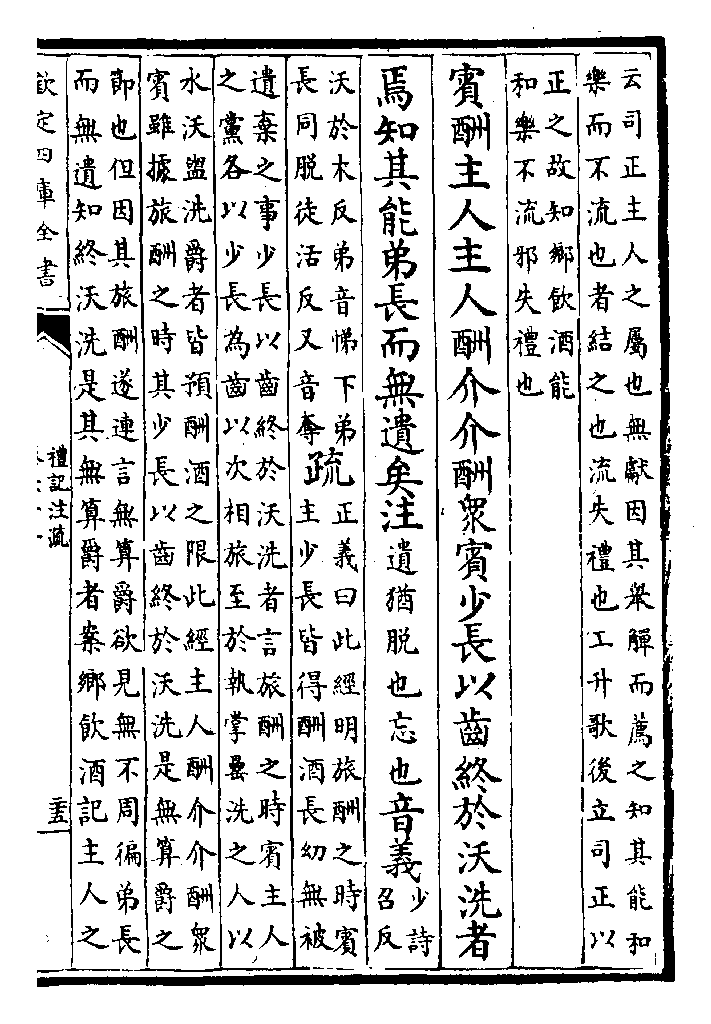 云司正主人之屬也無獻因其舉觶而薦之知其能和
樂而不流也者結之也流失禮也工升歌後立司正以
正之故知鄉飲酒能
和樂不流邪失禮也
賓酬主人主人酬介介酬眾賓少長以齒終於沃洗者
焉知其能弟長而無遺矣注遺猶脫也忘也音義少詩
召反
沃於木反弟音悌下弟
長同脫徒活反又音奪
疏
正義曰此經明旅酬之時賓
主少長皆得酬酒長幼無被
遺棄之事少長以齒終於沃洗者言旅酬之時賓主人
之黨各以少長為齒以次相旅至於執掌罍洗之人以
水沃盥洗爵者皆預酬酒之限此經主人酬介介酬眾
賓雖據旅酬之時其少長以齒終於沃洗是無算爵之
節也但因其旅酬遂連言無算爵欲見無不周徧弟長
而無遺知終沃洗是其無算爵者案鄉飲酒記主人之
欽定四庫全書
禮記注疏
二十五